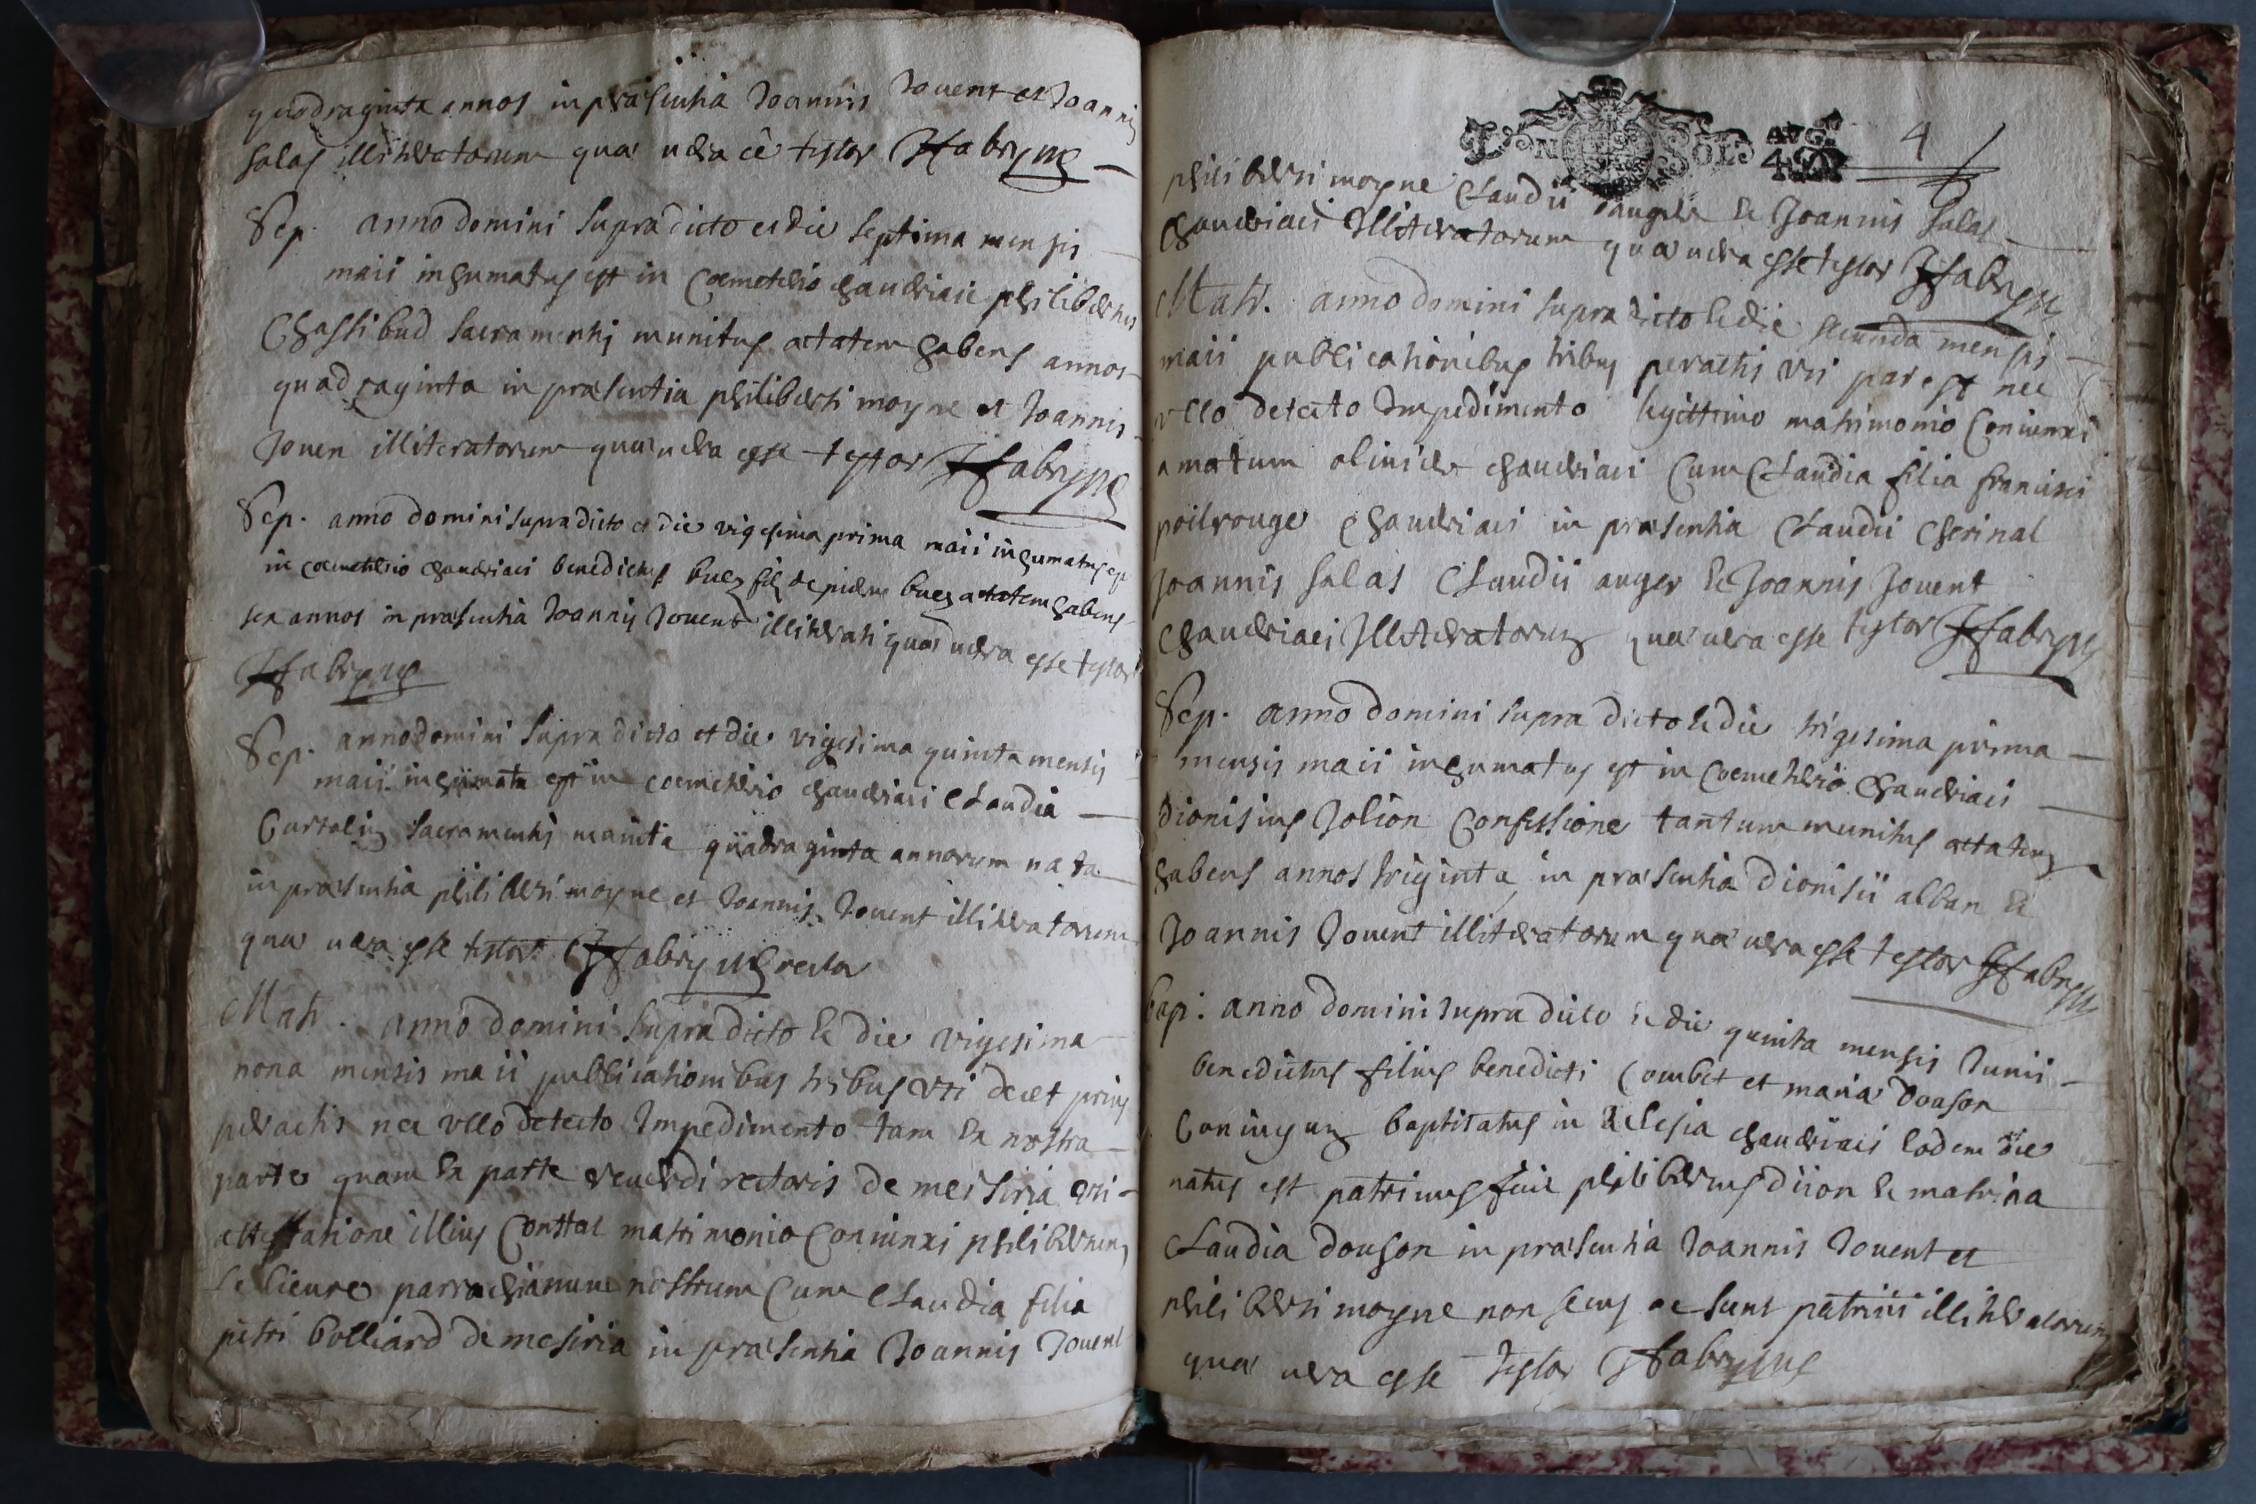 quadraginta annos in præsentia Joannis Jouent et Joannis
salas illitteratorum quæ vera ee testor Ffabryus
Sep. anno domini supradicto et die septima mensis
maii inhumatus est in Coemeterio chaveriaci philibertus
Chassibud sacramentis munitus ætatem habens annos
quadraginta in præsentia philiberti moyne et Joannis
Joven illiteratorum quæ vera esse testor Ffabryus
Sep. anno domini supradicto et die vigesima prima maii inhumatus est
in coemeterio chaveriaci benedictus buez filius de pierre buez ætatem habens
sex annos in præsentia Joannis Jouent illitterati quæ vera esse testor
Ffabryus
Sep. anno domini supra dicto et die vigesima quinta mensis
maii inhumata est in coemeterio chaveriaci Claudia
Curtelin sacramentis munita quadraginta annorum nata
in præsentia philiberti moyne et Joannis Jouent illitteratorum
quæ vera esse testor Ffabryus rector
Matr. anno domini supradicto &c die vigesima
nona mensis maii publicationibus tribus uti decet prius
peractis nec ullo detecto Impedimento tam Ex nostra
parte quam Ex parte reverdi rectoris de mesiria uti
attestatione illius Conttat matrimonio Coniunxi philibertum
Le lieure parrochianum nostrum Cum Claudia filia
petri bolliard de mesiria in præsentia Joannis Jouent
IN SOL AVG. 4
philiberti moyne Claudii auger Et Joannis salas
Chaveriaci Illiteratorum quæ vera esse testor Ffabryus
Matr. anno domini supra dicto &c die secunda mensis
maii publicationibus tribus peractis uti par est nec
ullo detecto Impedimento legittimo matrimonio Coniunxi
amatum olinier chaveriaci Cum Claudia filia francisci
poilrouge Chaveriaci in præsentia Claudii Cherinal
Joannis salas Claudii auger Et Joannis Jouent
Chaveriaci Illiteratorum quæ vera esse testor Ffabryus
Sep. anno domini supra dicto &c die trigesima prima
mensis maii inhumatus est in Coemeterio Chaveriaci
Dionisius Jolion Confessione tantum munitus ætatem
habens annos triginta in præsentia Dionisii alban Et
Joannis Jouent illiteratorum quæ vera esse testor Ffabryus
bap: anno domini supra dicto &c die quinta mensis Junii
benedictus filius benedicti Combet et maria douson
Coniugum baptisatus in Eclesia chaveriaci Eodem die
natus est patrinus fuit philibertus diion Et matrina
Claudia douson in præsentia Joannis Jouent et
philiberti moyne non secus ac sunt patrini illitteratorum
quæ vera esse testor Ffabryus